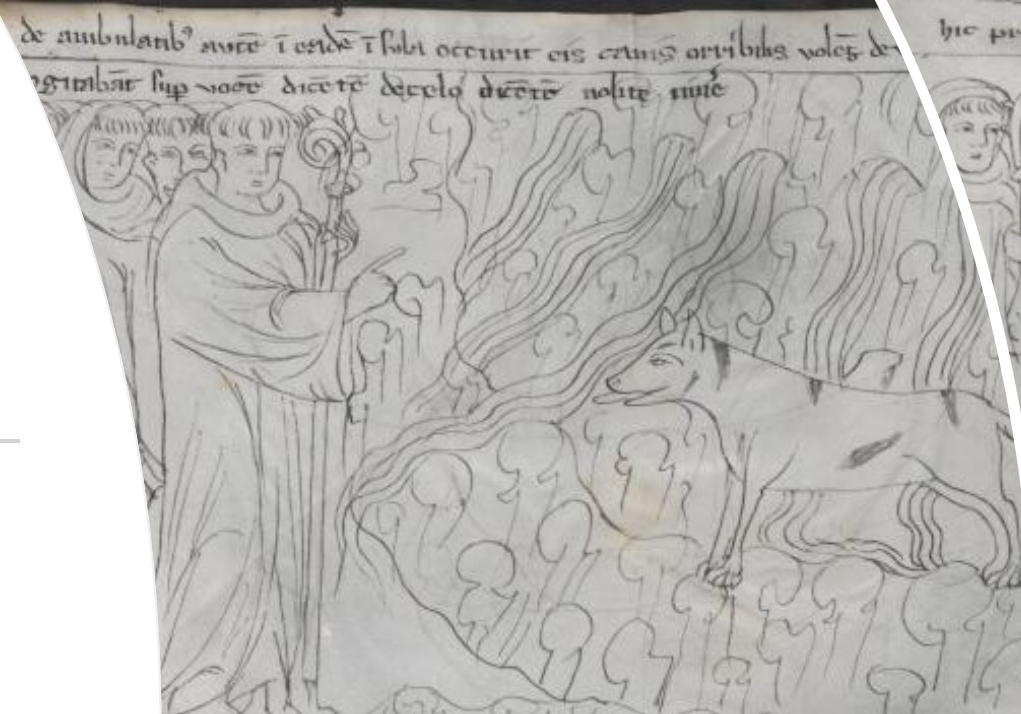 de ambulantib⁹ autē ī eadē īsula occurrit eis canis orribilis volēs de
sup vocē dicētē de celo dicētē nolite timē
hic pr